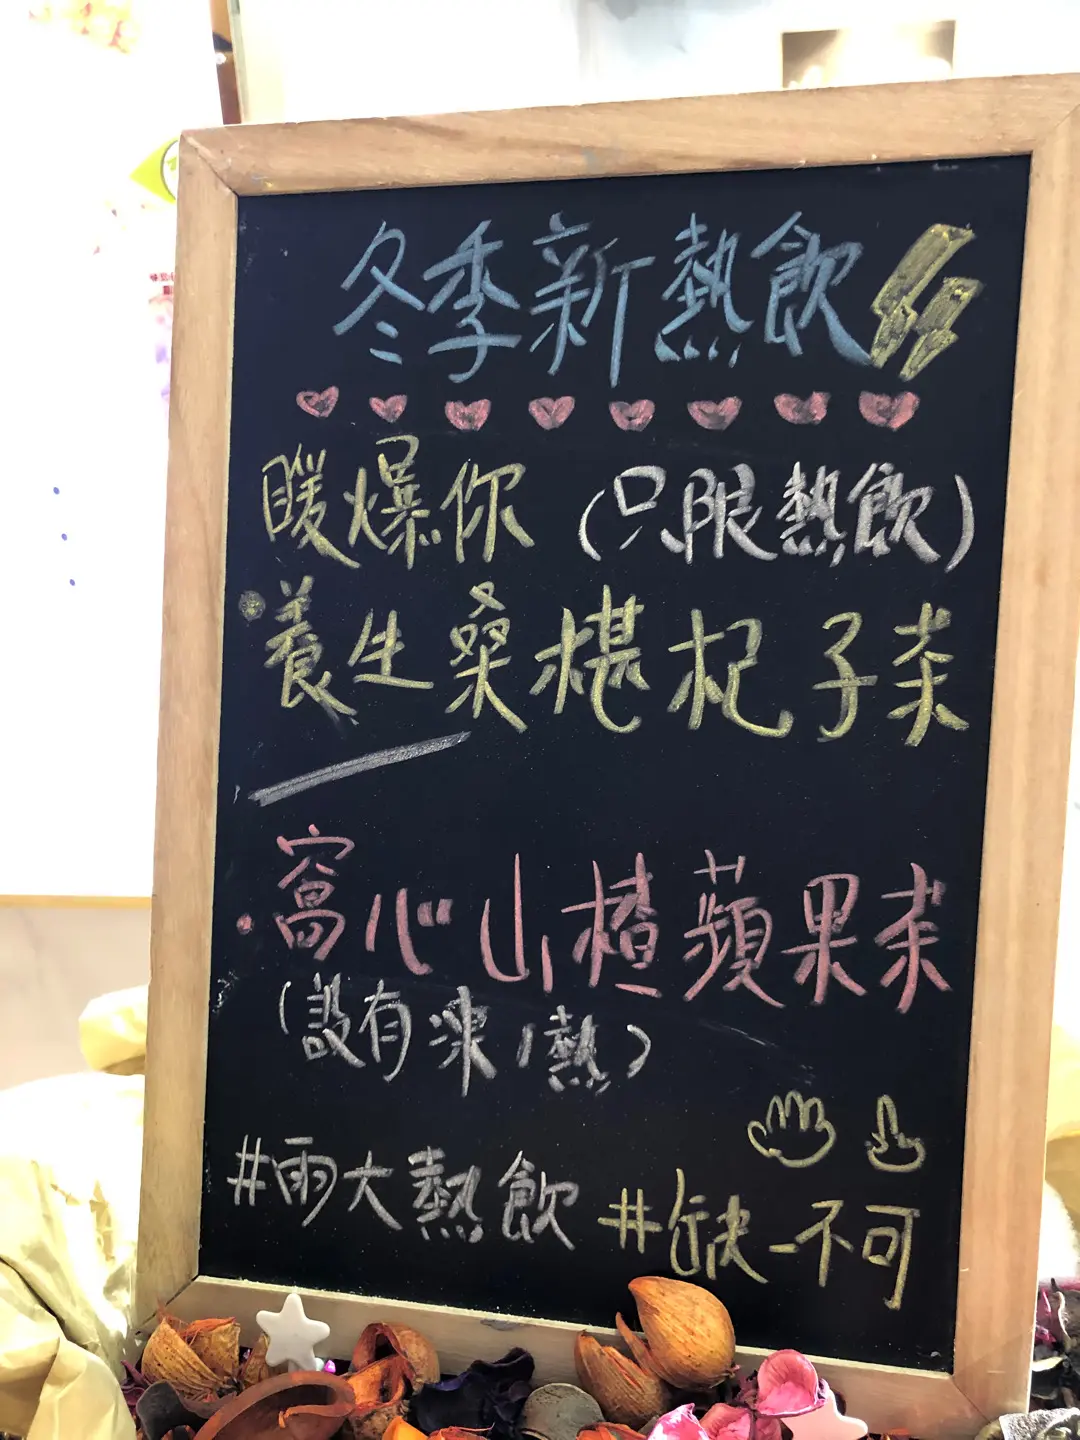 冬季新熱飲
暖爆你 (只限熱飲)
養生桑椹杞子茶
窩心山楂蘋果茶
(設有凍/熱)
#兩大熱飲 #缺一不可